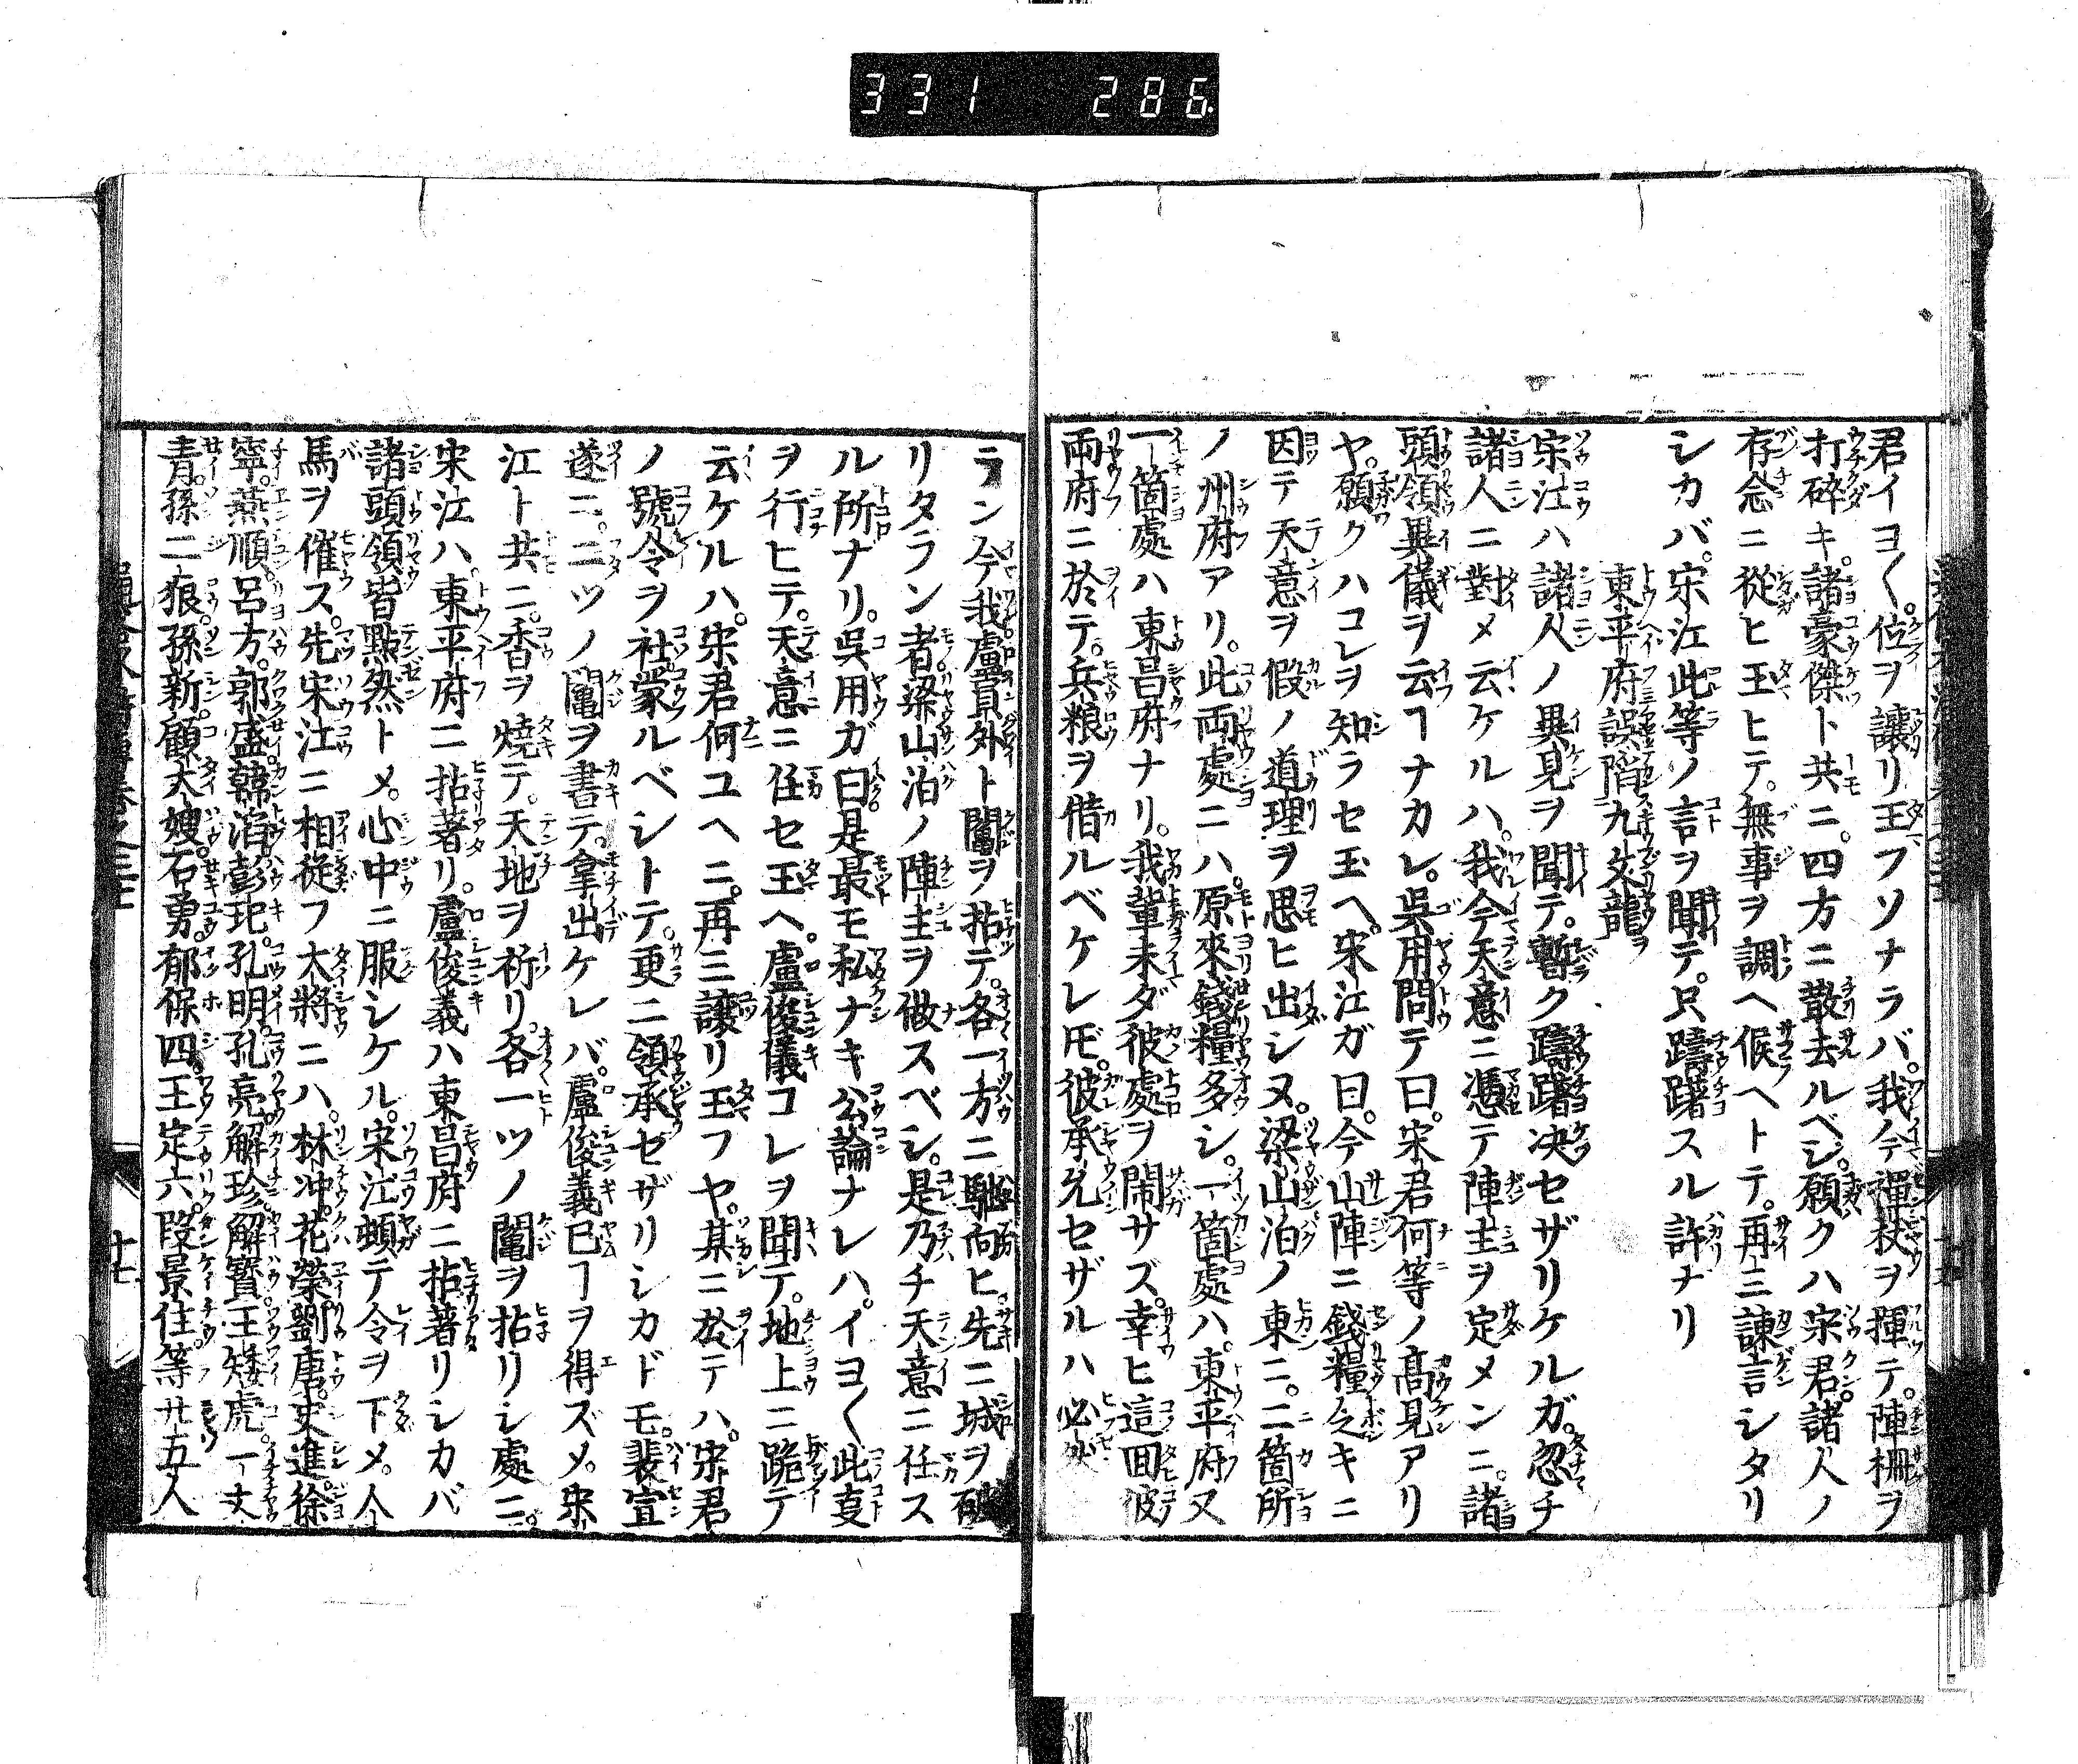 331 286
君イヨ〱。位ヲ讓リ玉フソナラバ。我今禪杖ヲ揮テ。陣柵ヲ
打碎キ。諸豪傑ト共ニ。四方ニ散去ルベシ。願クハ宗君。諸人ノ
存念ニ從ヒ玉ヒテ。無事ヲ調ヘ候ヘトテ。再三諫言シタリ
シカバ。宋江此等ノ言ヲ聞テ。只躊躇スル許ナリ
東平府誤陷九文龍ヲ
宗江ハ諸人ノ異見ヲ聞テ。暫ク躊躇决セザリケルガ。忽チ
諸人ニ對メ云ケルハ。我今天意ニ憑テ陣主ヲ定メンニ。諸
頭領異儀ヲ云ヿナカレ。吳用問テ曰。宋君何等ノ髙見アリ
ヤ。願クハコレヲ知ラセ玉ヘ。宋江ガ曰。今山陣ニ錢糧乏キニ
因テ天意ヲ假ノ道理ヲ思ヒ出シヌ。梁山泊ノ東ニ。二箇所
ノ州府アリ。此両處ニハ。原來錢糧多シ。一箇處ハ。東平府又
一箇處ハ東昌府ナリ。我輩未ダ彼處ヲ閙サズ。幸ヒ這囬彼
両府ニ於テ。兵粮ヲ借ルベケレ𪜈。彼承允セザルハ必然
ラン今我盧貟外ト鬮ヲ拈テ。各一方ニ馳向ヒ。先ニ城ヲ破
リタラン者。梁山泊ノ陣主ヲ做スベシ。是乃チ天意ニ任ス
ル所ナリ。吳用ガ曰。是最モ私ナキ公論ナレハ。イヨ〱此叓
ヲ行ヒテ。天意ニ任セ玉ヘ。盧俊儀コレヲ聞テ。地上ニ跪テ
云ケルハ。宋君何ユヘニ。再三讓リ玉フヤ。某ニ於テハ。宗君
ノ號令ヲ社蒙ルベシトテ。更ニ領承セザリシカドモ。裴宣
遂ニ。二ツノ鬮ヲ書テ。拿出ケレバ。盧俊義已ヿヲ得ズメ。宋
江ト共ニ。香ヲ燒テ。天地ヲ祈リ。各一ツノ鬮ヲ拈リシ處ニ。
宋江ハ。東平府ニ拈著リ。盧俊義ハ東昌府ニ拈著リシカバ
諸頭領皆㸃然トメ。心中ニ服シケル。宋江頓テ令ヲ下メ。人
馬ヲ催ス。先宋江ニ相從フ大將ニハ。林冲。花榮。劉唐。史進。徐
寧。燕順。呂方。郭盛。韓滔。彭玘。孔明。孔亮。解珍。解寶。王矮虎。一丈
青。孫二娘。孫新。顧大嫂。石勇。郁保四。王定六。段景住等廿五人
十七